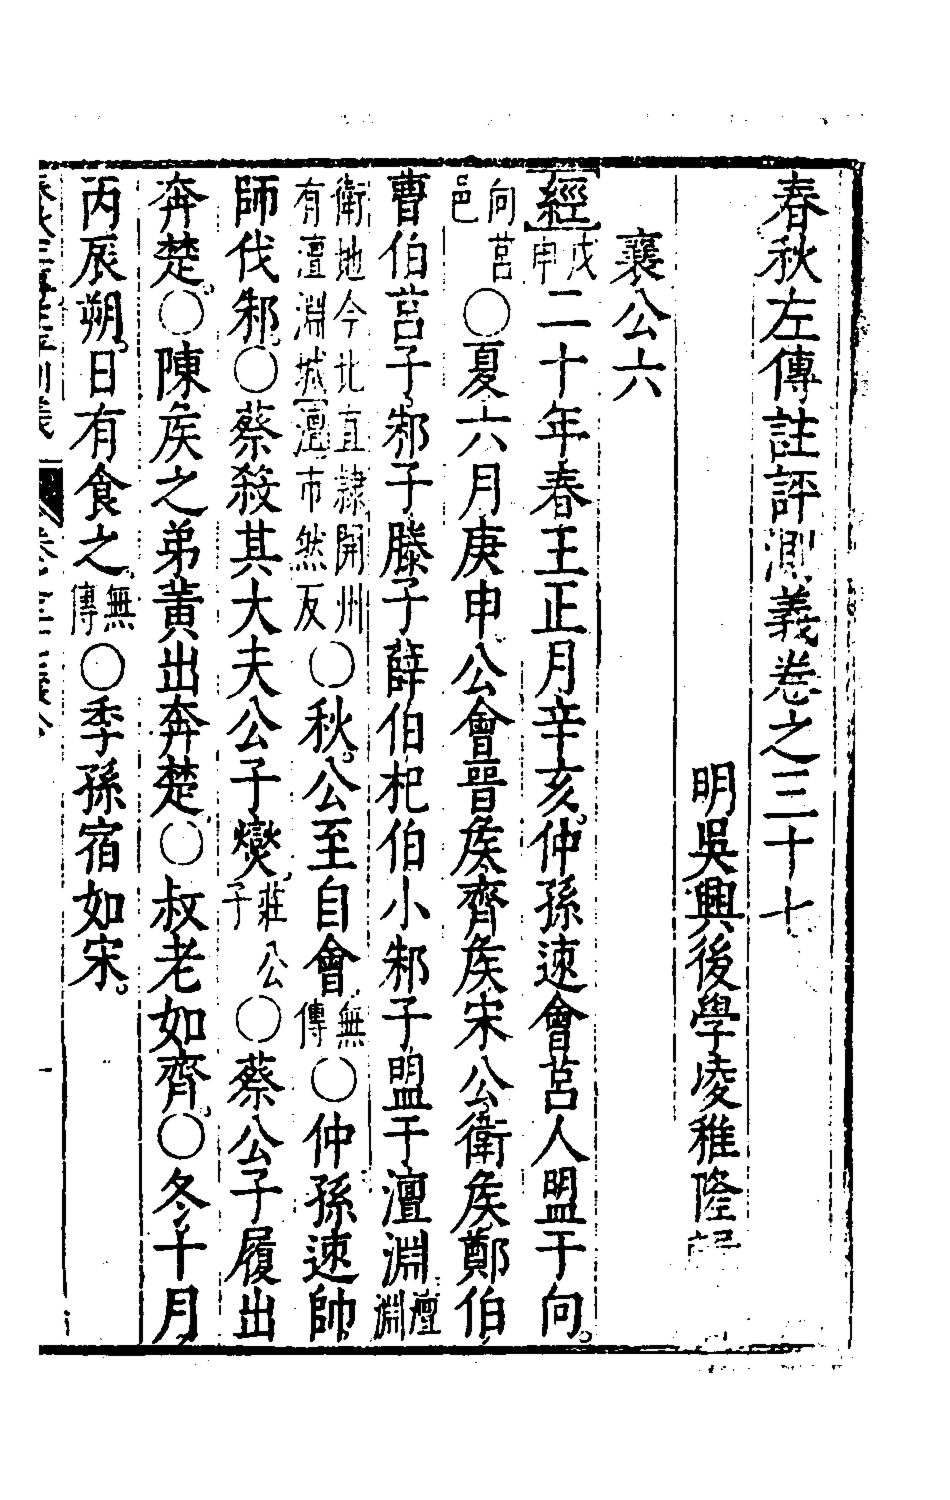 春秋左傳註評測義卷之三十七
明吳興後學凌稚隆
襄公六
經戊申二十年春王正月辛亥仲孫速會莒人盟于向。
向莒邑○夏六月庚申公會晉矦齊矦宋公衛矦鄭伯
曹伯莒子邾子滕子薛伯杞伯小邾子盟于澶淵澶淵
衛地今北直隷開州有澶淵城澶市然反○秋。公至自會無傳○仲孫速帥
師伐邾。○蔡殺其大夫公子燮。莊公子○蔡公子履出
奔楚。○陳矦之弟黃出奔楚。○叔老如齊。○冬十月
丙辰朔。日有食之。無傳○季孫宿如宋。